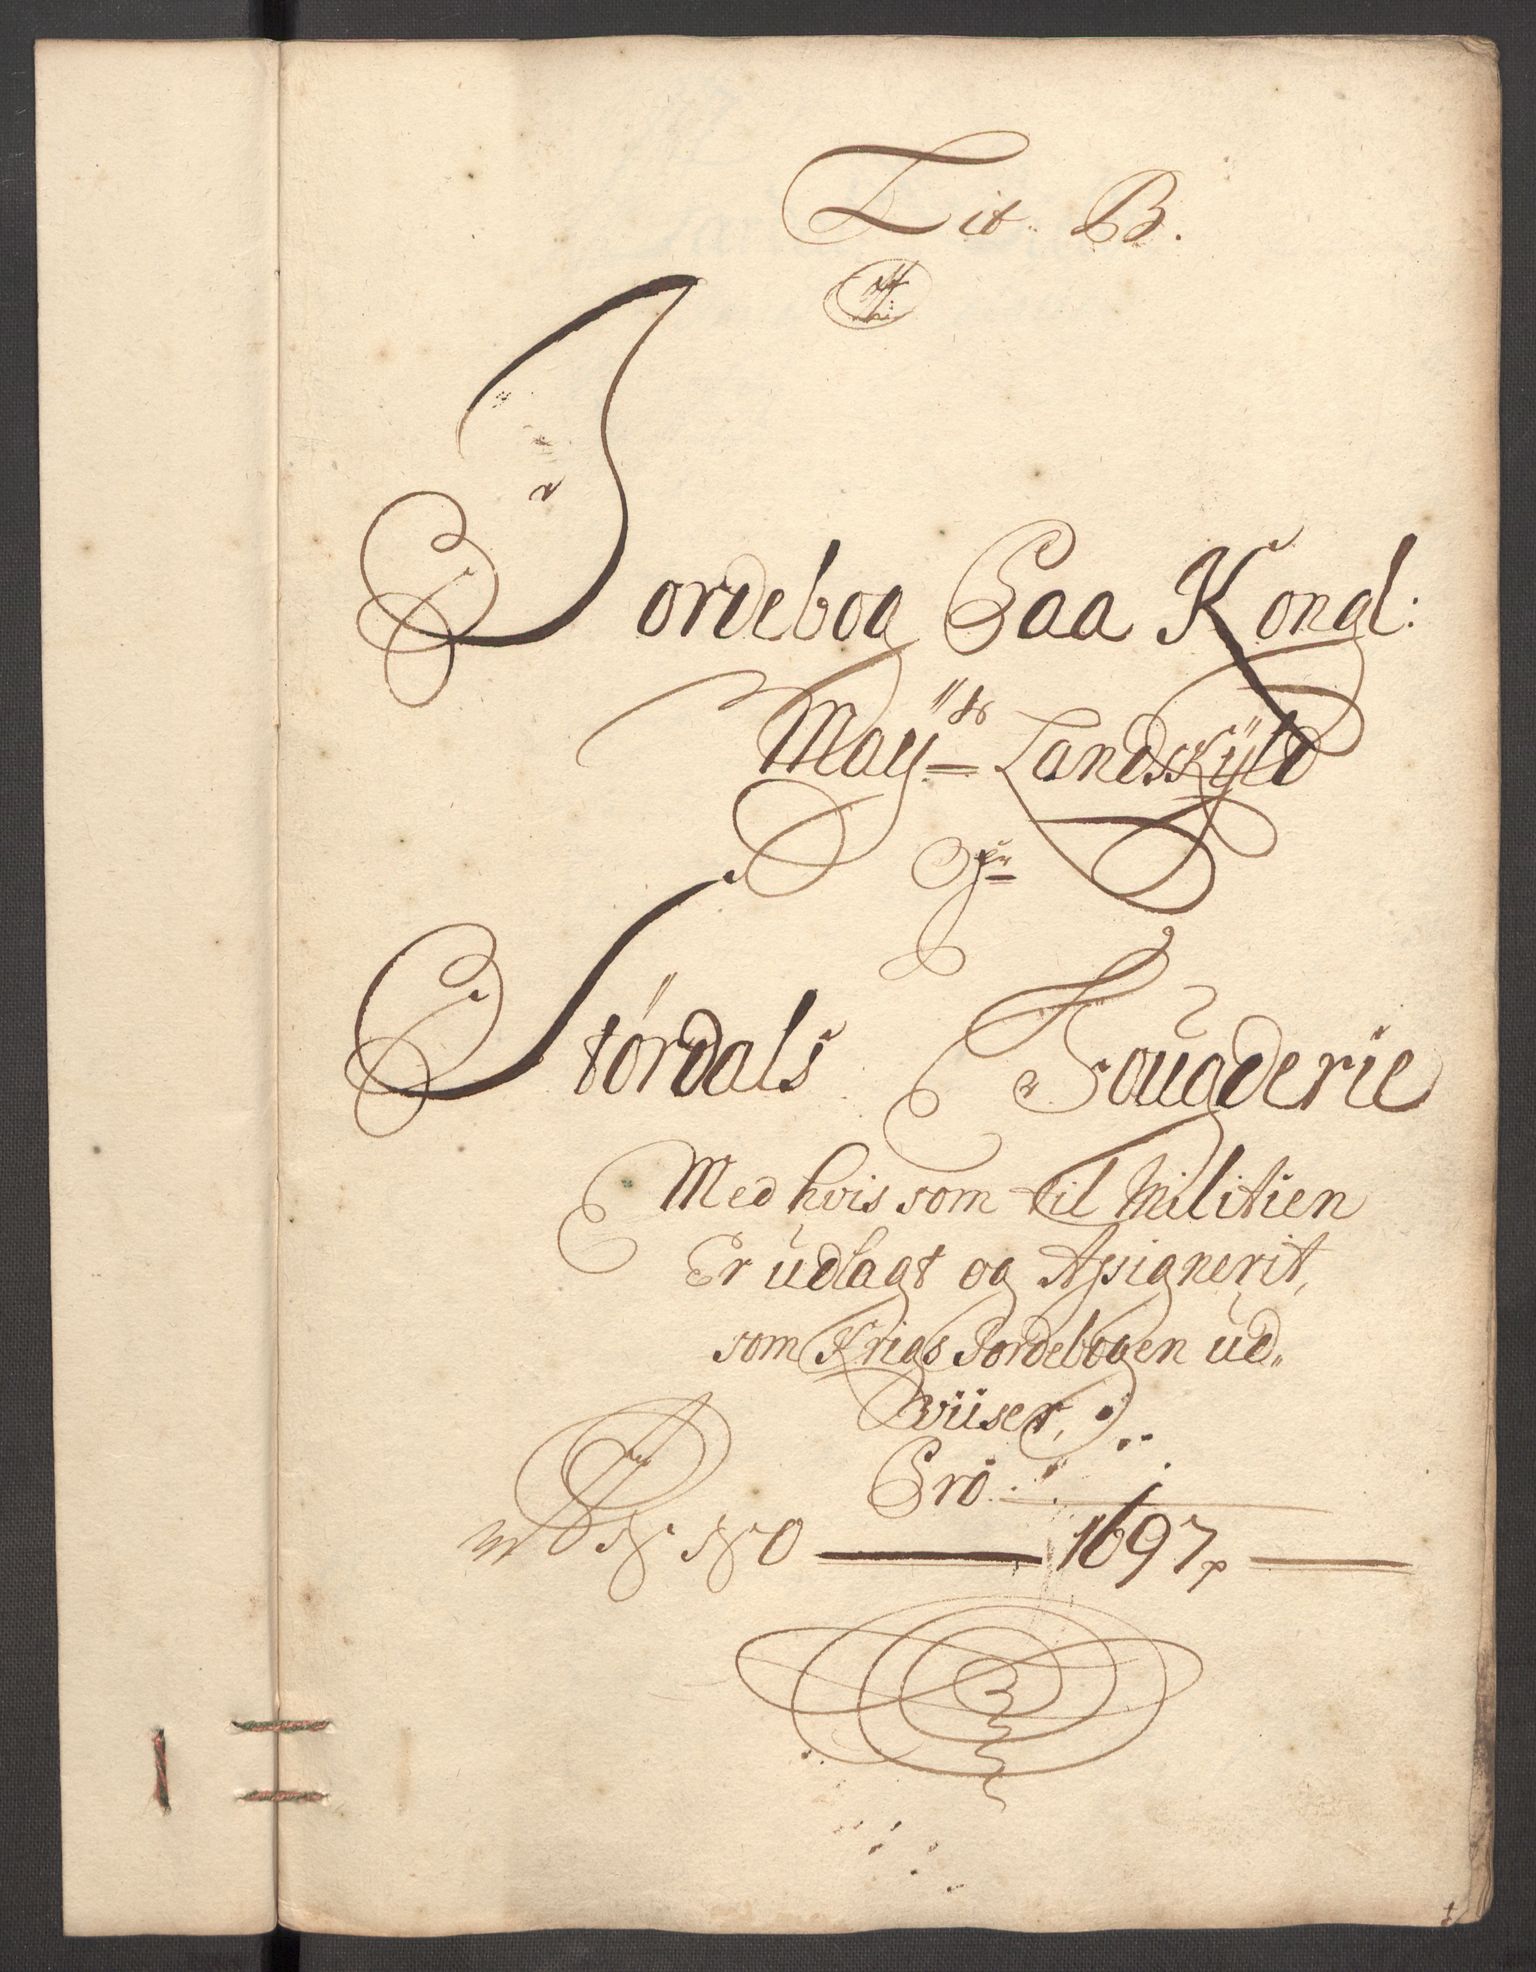 Lit. B.
Jordebog Paa Kongl:
Mayᵗˢ Landskÿld
Størdals Fougderie
Med hvis som til Militien
Er udlagt og Assignerit,
som Krigs Jordebogen ud„
Wiiser,
Pro
Anno 1697